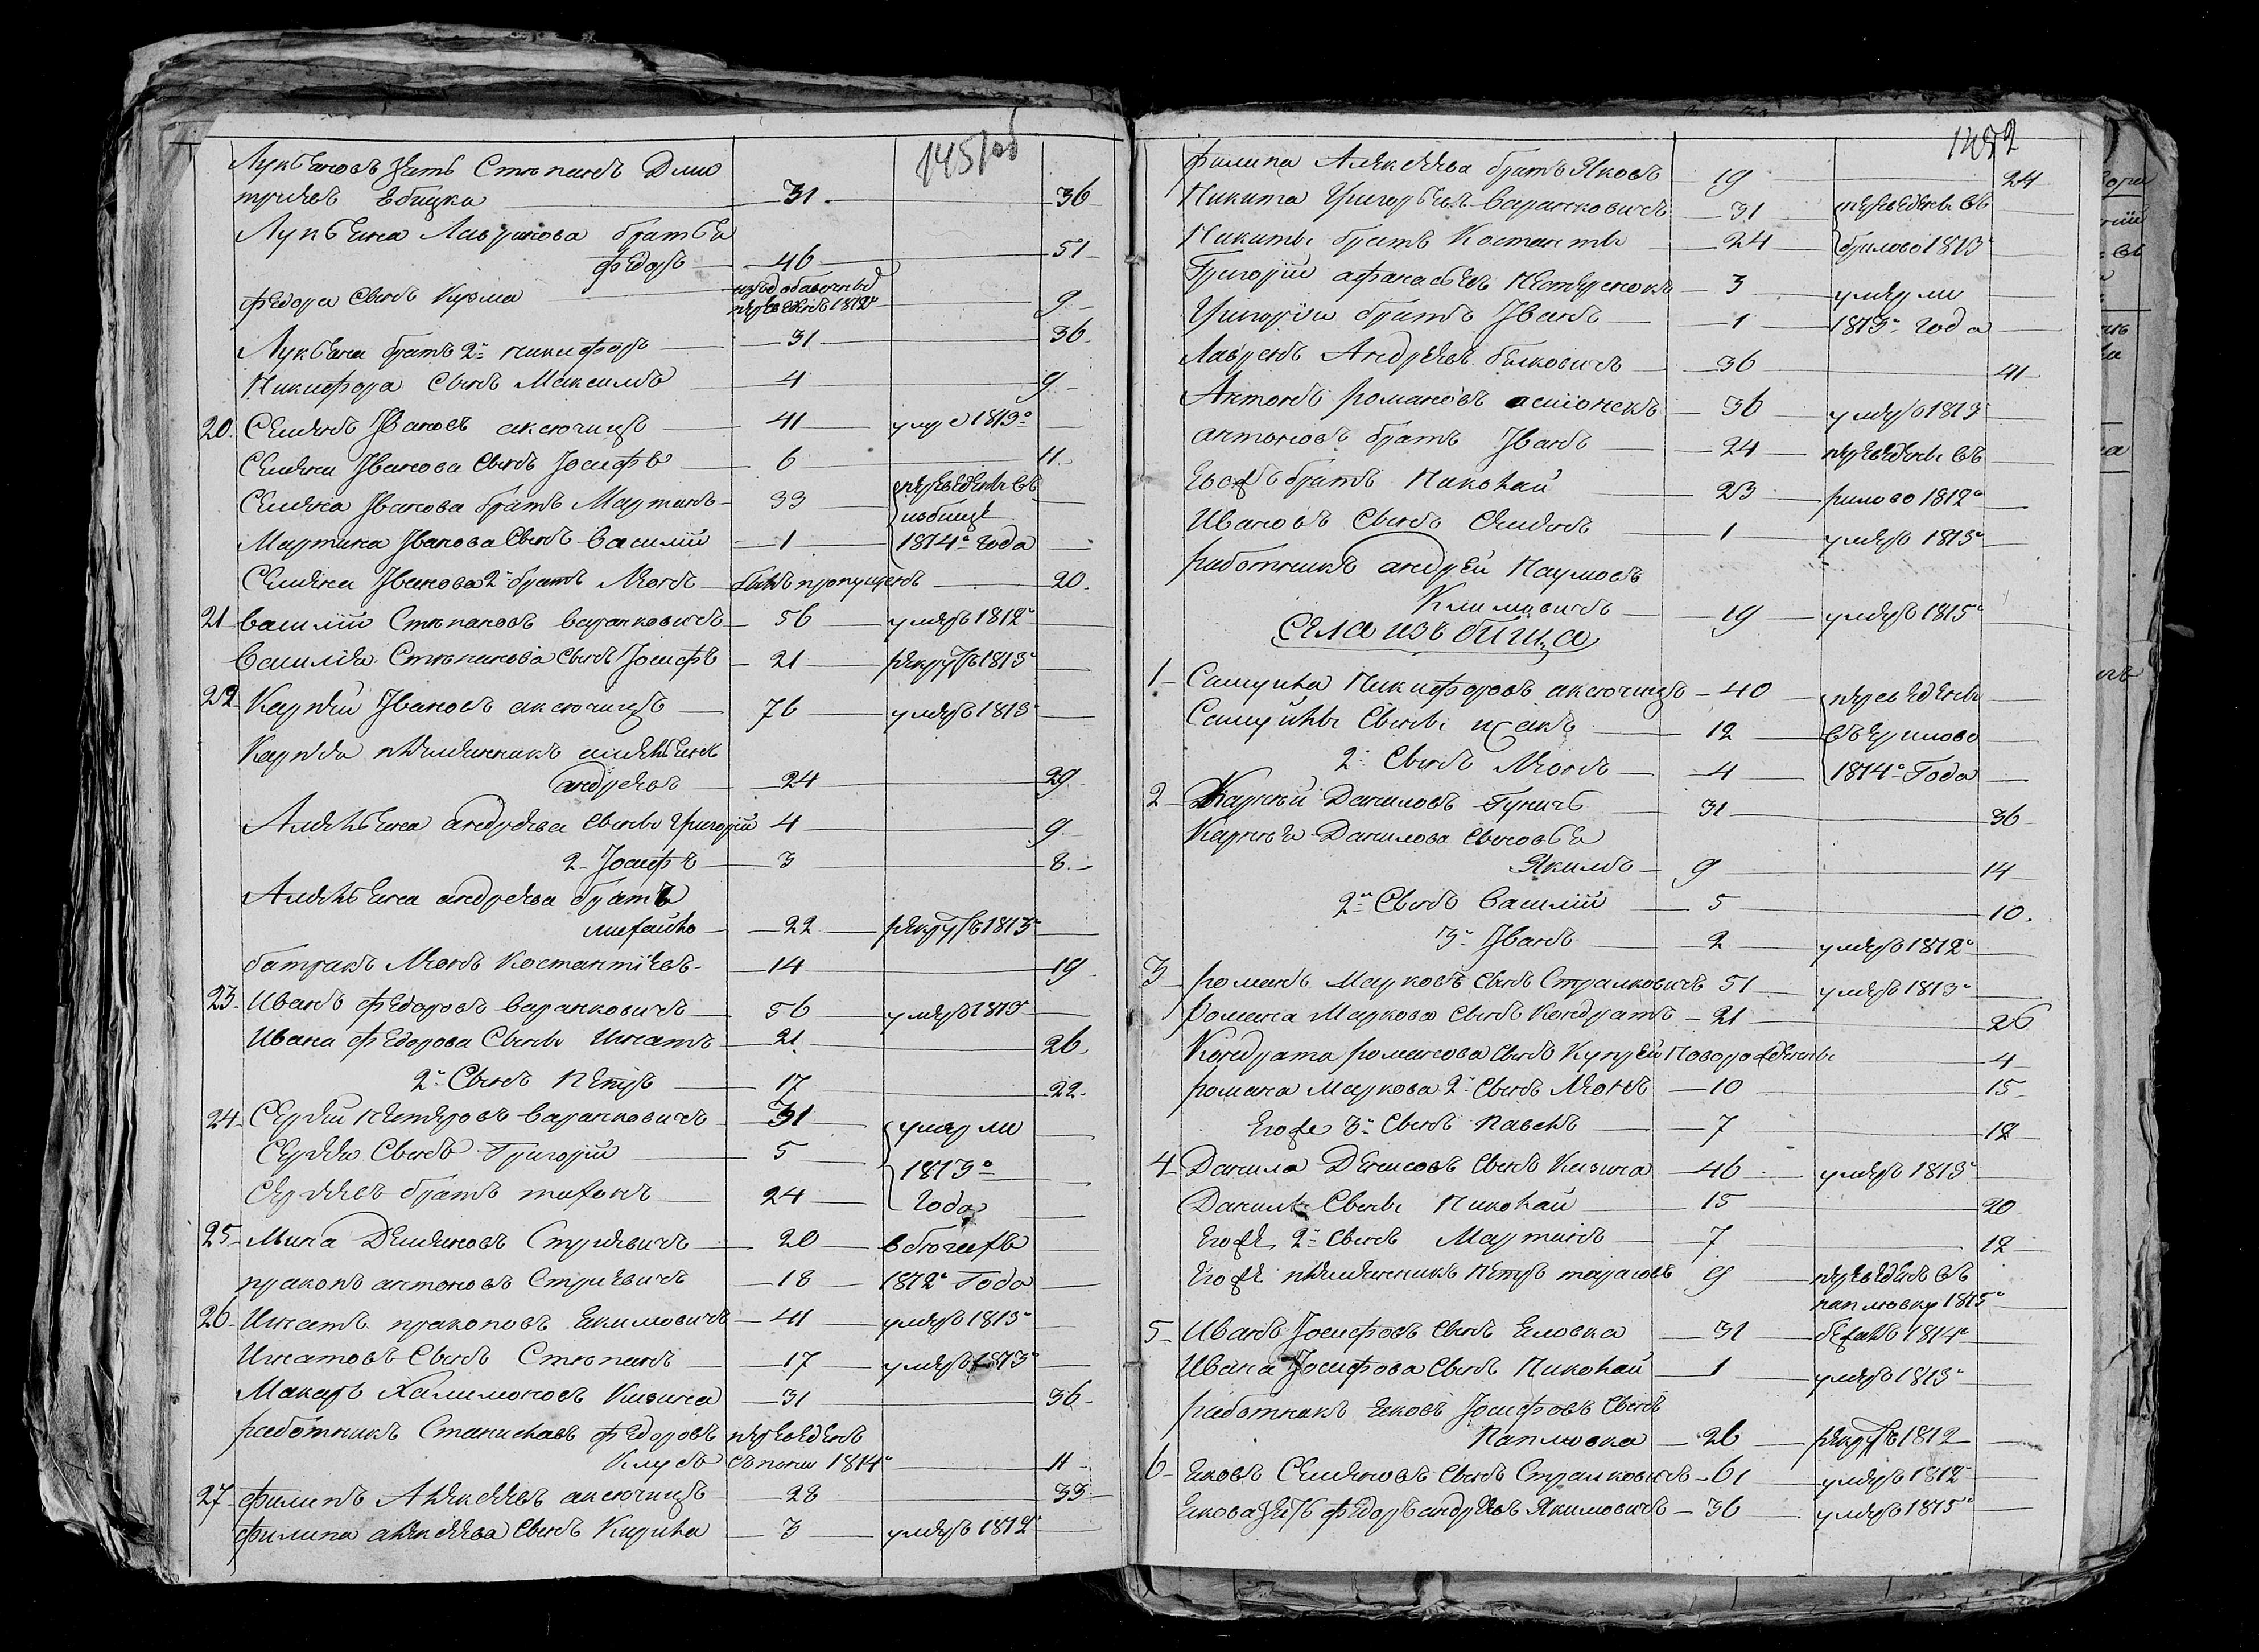 145 об
Лукьяновъ зять Степанъ Дми
триевъ Ебицка 31 36
Лукьяна Лавринова братья
Федоръ 46 51
Федора сынъ Кузма переведенъ 1812 9
Лукьяна братъ 2й Никифоръ 31 36
Никифора сынъ Максимъ 4 9
20 Семенъ Ивановъ аксючицъ 41 умре 1813о
Семена Иванова сынъ Иосифъ 6 11
Семена Иванова братъ Мартинъ 33 переведены въ
избище
Мартина Иванова сынъ василий 1 1814о года
Семена Иванова 2й братъ Леонъ былъ пропущенъ 20
21 василий Степановъ варанковичъ 56 умеръ 1812о
василия Степанова сынъ Иосифъ 21 рекрутъ 1813о
22 Карпей Ивановъ аксючицъ 76 умеръ 1813о
Карпея племенникъ емельянъ
андреевъ 24 29
Амельяна андреева сыны Григорий 4 9
2 Иосифъ 3 8
Амельяна андреева братъ
михайло 22 рекрутъ 1813о
батракъ Леонъ Костантиевъ 14 19
23 Иванъ Федоровъ варанковичъ 56 умеръ 1813о
Ивана Федорова сыны Игнатъ 21 26
2й сынъ Петръ 17 22
24 Сергей Петровъ варанковичъ 31 умерли
Сергея сынъ Григорий 5 1813о
Сергеевъ братъ тихонъ 24 года
25 Мина Деменовъ Стриевичъ 20 в бегахъ
пракопъ антоновъ Стриевичъ 18 1812о Года
26 Игнатъ пракоповъ Екимовичъ 41 умеръ 1813о
Игнатовъ сынъ Степанъ 17 умеръ 1813о
Макаръ Халимоновъ Кизина 31 36
работникъ Станиславъ Федоровъ переведенъ
Клубъ 1814о 11
27 Филипъ Алексеевъ аксючицъ 28 33
Филипа алексеева сынъ Кирила 3 умеръ 1812о
Филипа Алексеева братъ Яковъ 19 24
Никита Григорьевъ варанковичъ 31 переведены въ
Никиты братъ Костантъ 24 1813о
Григорий афанасьевъ Нестеренокъ 3 умерли
Григория братъ Иванъ 1 1813о года
Лавренъ Андреевъ белковичъ 36 41
Антонъ романовъ 36 умеръ 1813
антоновъ братъ Иванъ 24 переведены въ
Егожъ братъ Николай 23 1812о
Ивановъ сынъ Семенъ 1 умеръ 1813о
работникъ андрей Наумовъ
Климовичъ 19 умеръ 1815о
Села избища
1 Самуила Никифоровъ аксючицъ 40 переведены
Самуилы сыны исакъ 12
2й сынъ Леонъ 4 1814о Года
2 Карней Даниловъ Гуничъ 31 36
Карнея Данилова сыновья
Якимъ 9 14
2й сынъ василий 5 10
3й Иванъ 2 умеръ 1812о
3 романъ Марковъ сынъ Страмковичъ 51 умеръ 1813о
Романа Маркова сынъ Кондратъ 21 26
Кондрата романова сынъ Купрей новорожденны 4
романа Маркова 2й сынъ Леонъ 10 15
Егоже 3й сынъ павелъ 7 12
4 Данила Денисовъ сынъ Кизина 46 умеръ 1813о
Данилы сыны Николай 15 20
Егоже 2й сынъ Мартинъ 7 12
Егоже племенникъ Петръ тарасовъ 9 переведенъ въ
паплювку 1815о
5 Иванъ Иосифовъ сынъ Еловка 31 бежалъ 1814о
Ивана Иосифова сынъ Николай 1 умеръ 1813о
работникъ яковъ Иосифовъ сынъ
Паплювка 26 рекрутъ 1812
6 яковъ Семеновъ сынъ Страмковичъ 61 умеръ 1812о
якова зять Федоръ андреевъ Якимовичъ 36 умеръ 1815о